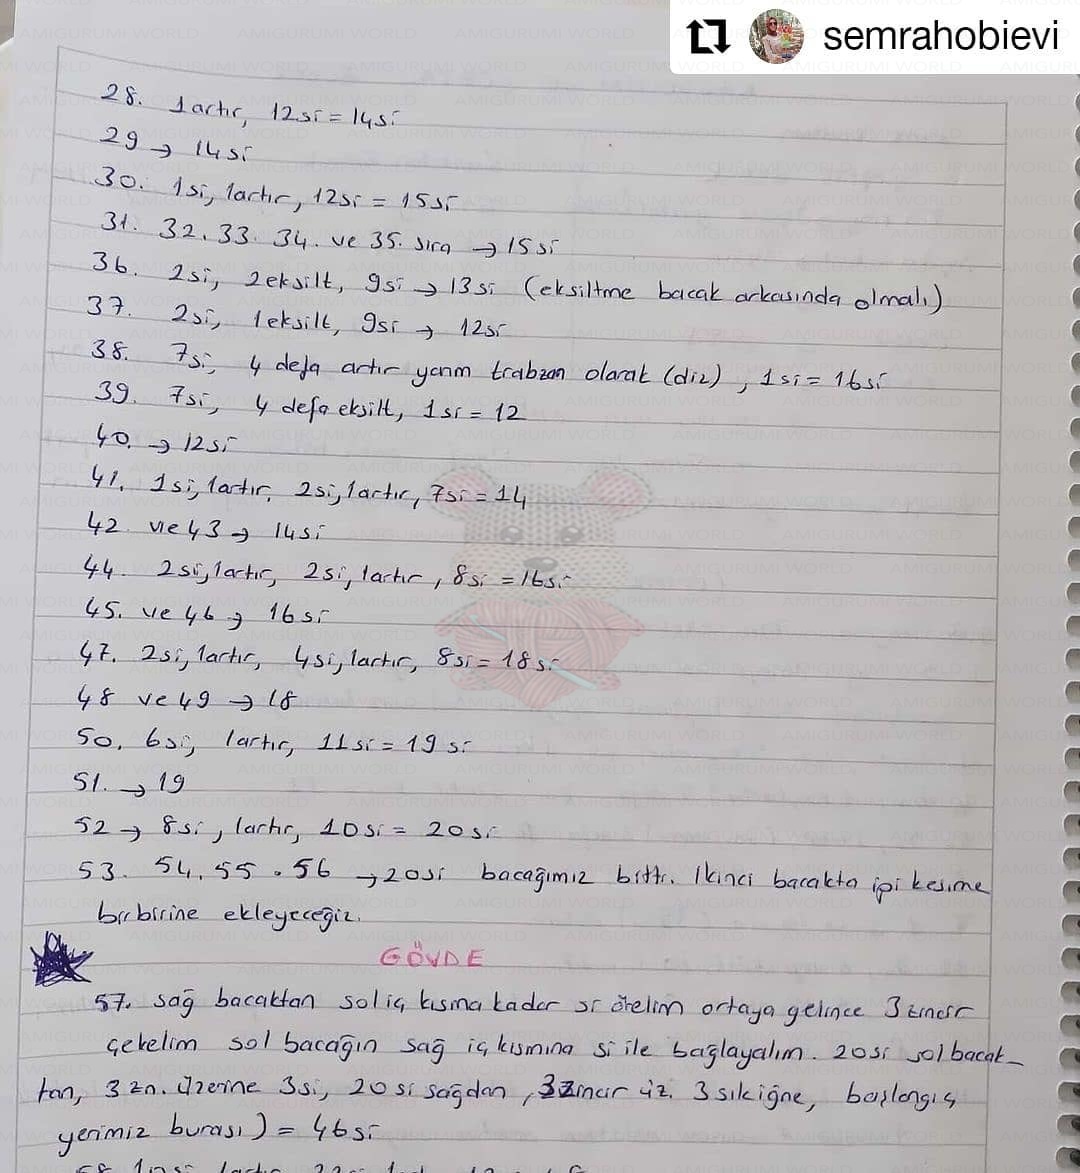 semrahobievi
28. 1artır, 12si = 14si
29 → 14si
30. 1si, 1artır, 12si = 15si
31. 32. 33. 34. ve 35. sıra → 15si
36. 2si, 2eksilt, 9si → 13si (eksiltme bacak arkasında olmalı)
37. 2si, 1eksilt, 9si → 12si
38. 7si, 4 defa artır yarım trabzan olarak (diz), 1si = 16si
39. 7si, 4 defa eksilt, 1si = 12
40. → 12si
41. 1si, 1artır, 2si, 1artır, 7si = 14
42. ve 43 → 14si
44. 2si, 1artır, 2si, 1artır, 8si = 16si
45. ve 46 → 16si
47. 2si, 1artır, 4si, 1artır, 8si = 18si
48 ve 49 → 18
50. 6si, 1artır, 11si = 19si
51. → 19
52 → 8si, 1artır, 10si = 20si
53. 54. 55. 56 → 20si bacağımız bitti. İkinci bacakta ipi kesme
birbirine ekleyeceğiz.
GÖVDE
57. sağ bacaktan sol iç kısma kadar si örelim ortaya gelince 3 zincir
çekelim sol bacağın sağ iç kısmına si ile bağlayalım. 20si sol bacak_
tan, 3 zn. üzerine 3si, 20si sağdan, 3zincir üz. 3 sıkiğne, başlangıç
yerimiz burası) = 46si